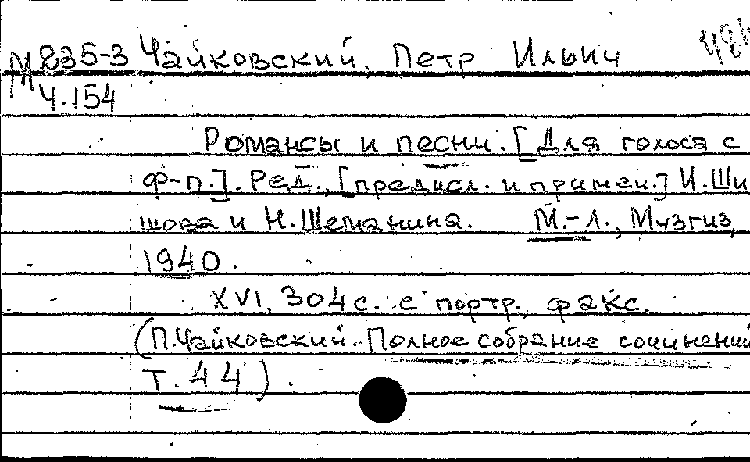 М 235-3 Чайковский, Петр Ильич
Ч.154
Романсы и песни. [Для голоса с
ф-п.]. Ред., [предисл. и примеч.] И. Ши-
шова и Н. Шеманина. М.-Л., Музгиз,
1940.
XVI, 304 с. с портр., факс.
(П. Чайковский. Полное собрание сочинений
Т. 44).